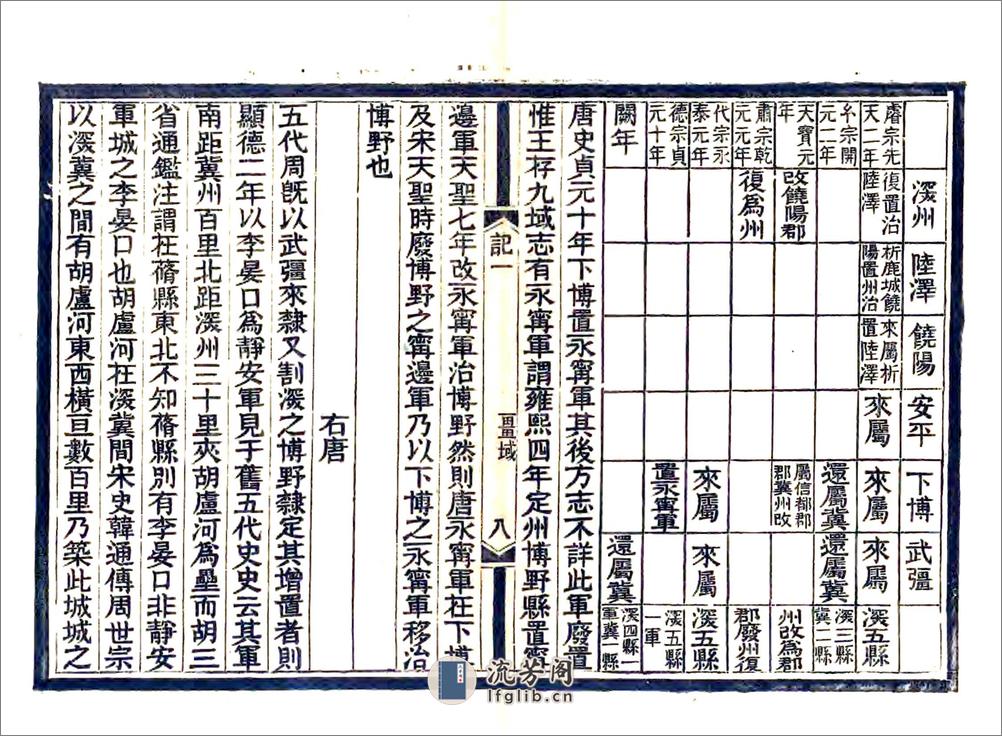 㴱州
陸澤
饒陽
安平
下博
武彊
睿宗先
天二年
復置治
陸澤
析鹿城饒
陽置州治
來屬析
置陸澤
來屬
來屬
來屬
㴱五縣
玄宗開
元二年
還屬冀
還屬冀
㴱三縣
冀二縣
天寶元
年
改饒陽郡
屬信都郡
郡冀州改
州改為郡
肅宗乾
元元年
復為州
郡廢州復
代宗永
泰元年
來屬
來屬
㴱五縣
德宗貞
元十年
置永寧軍
㴱五縣
一軍
闕年
還屬冀
㴱四縣一
軍冀一縣
唐史貞元十年下博置永寧軍其後方志不詳此軍廢置
惟王存九域志有永寧軍謂雍熙四年定州博野縣置寧
記一
畺域
八
邊軍天聖七年改永寧軍治博野然則唐永寧軍在下博
及宋天聖時廢博野之寧邊軍乃以下博之永寧軍移治
博野也
右唐
五代周旣以武彊來隸又割㴱之博野隸定其增置者則
顯德二年以李晏口爲靜安軍見于舊五代史史云其軍
南距冀州百里北距㴱州三十里夾胡盧河爲壘而胡三
省通鑑注謂在蓨縣東北不知蓨縣別有李晏口非靜安
軍城之李晏口也胡盧河在㴱冀間宋史韓通傳周世宗
以㴱冀之間有胡盧河東西橫亘數百里乃築此城城之
流芳阁
lfglib.cn